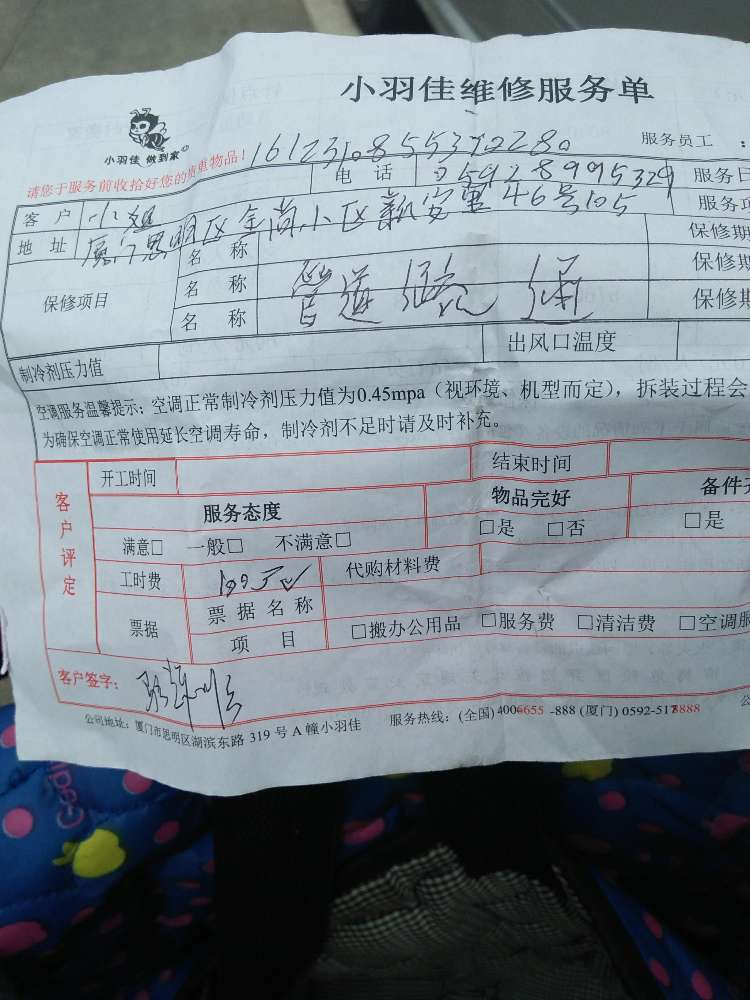 小羽佳维修服务单
小羽佳 做到家
请您于服务前收拾好您的贵重物品!
服务员工 :
客户 小姐 电话 服务日
地址 厦门思明区金尚小区新安里46号105 服务项
保修项目 名称 保修期
名称 管道 保修期
名称 保修期
制冷剂压力值 出风口温度
空调服务温馨提示:空调正常制冷剂压力值为0.45mpa(视环境、机型而定),拆装过程会
为确保空调正常使用延长空调寿命,制冷剂不足时请及时补充。
客户评定
开工时间 结束时间
服务态度 物品完好 备件
满意□ 一般□ 不满意□ □是 □否 □是
工时费 代购材料费
票据 票据名称
项目 □搬办公用品 □服务费 □清洁费 □空调服
客户签字:
公司地址:厦门市思明区湖滨东路 319 号 A 幢小羽佳 服务热线:(全国) 4006655 -888 (厦门) 0592-5178888